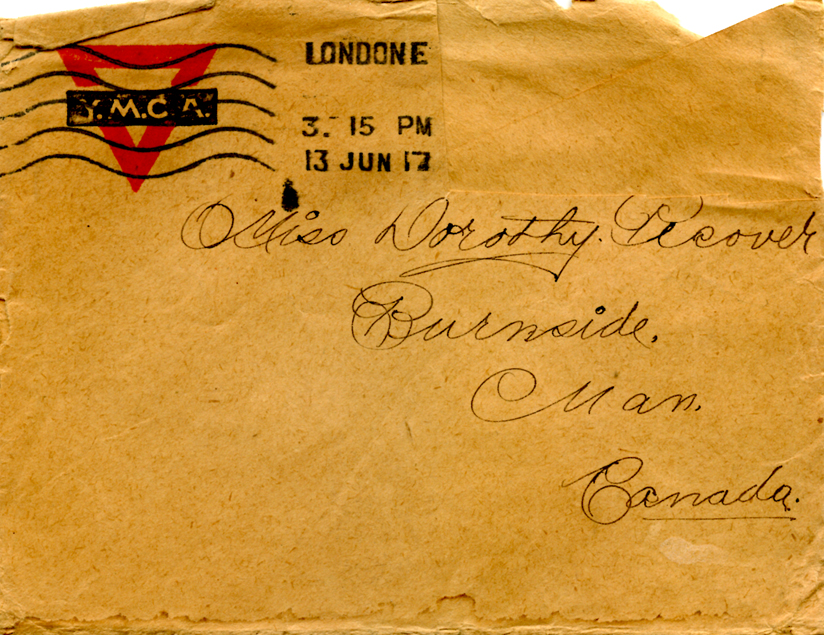 Y.M.C.A.
LONDON E
3. 15 PM
13 JUN 17
Miss Dorothy. Pecover
Burnside.
Man.
Canada.